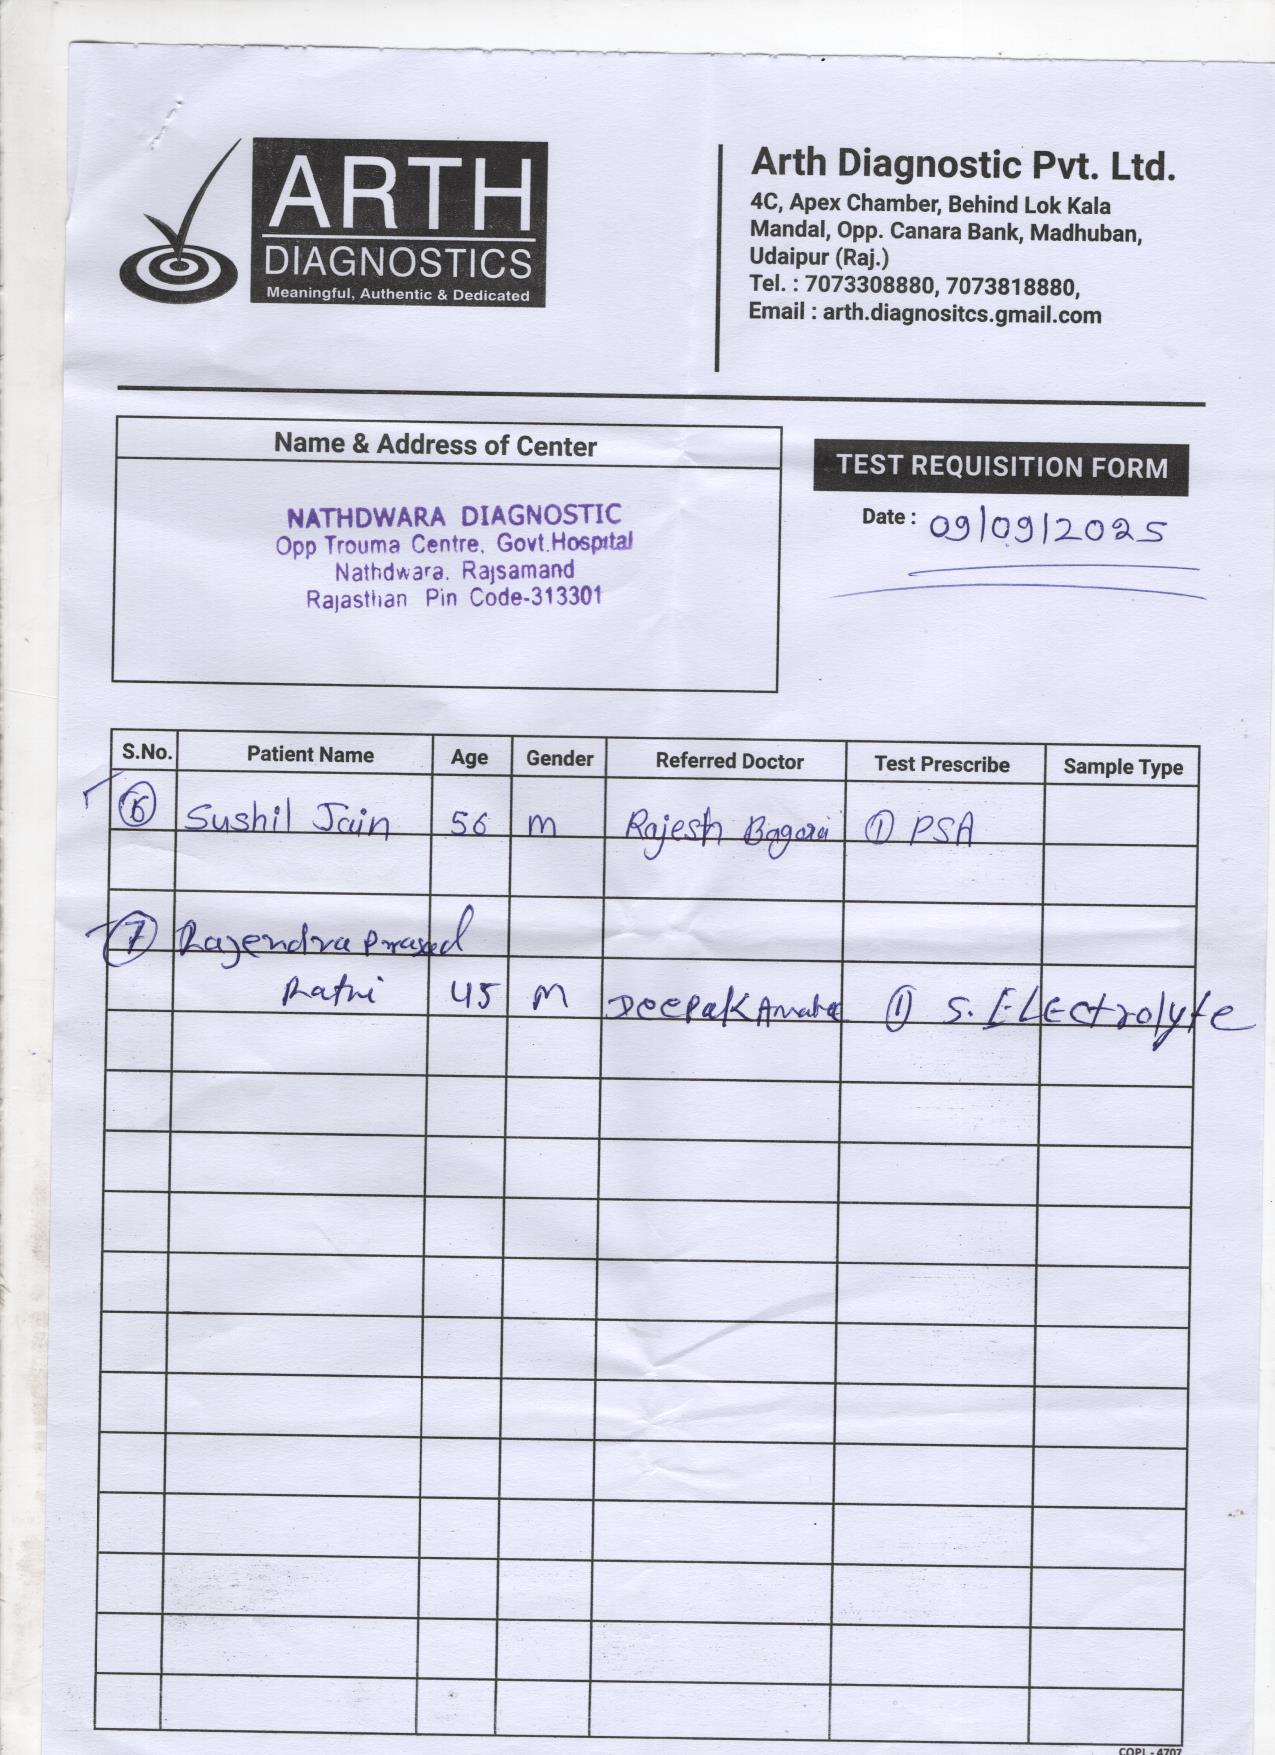 ARTH
DIAGNOSTICS
Meaningful, Authentic & Dedicated
Arth Diagnostic Pvt. Ltd.
4C, Apex Chamber, Behind Lok Kala
Mandal, Opp. Canara Bank, Madhuban,
Udaipur (Raj.)
Tel. : 7073308880, 7073818880,
Email : arth.diagnositcs.gmail.com
Name & Address of Center
NATHDWARA DIAGNOSTIC
Opp Trouma Centre, Govt.Hospital
Nathdwara, Rajsamand
Rajasthan Pin Code-313301
TEST REQUISITION FORM
Date : 09/09/2025
S.No. Patient Name Age Gender Referred Doctor Test Prescribe Sample Type
6 Sushil Jain 56 M Rajesh ① PSA
7 Rajendra Prasad
Rathi 45 M Deepak ① S. ELEctrolyte
COPL - 4707